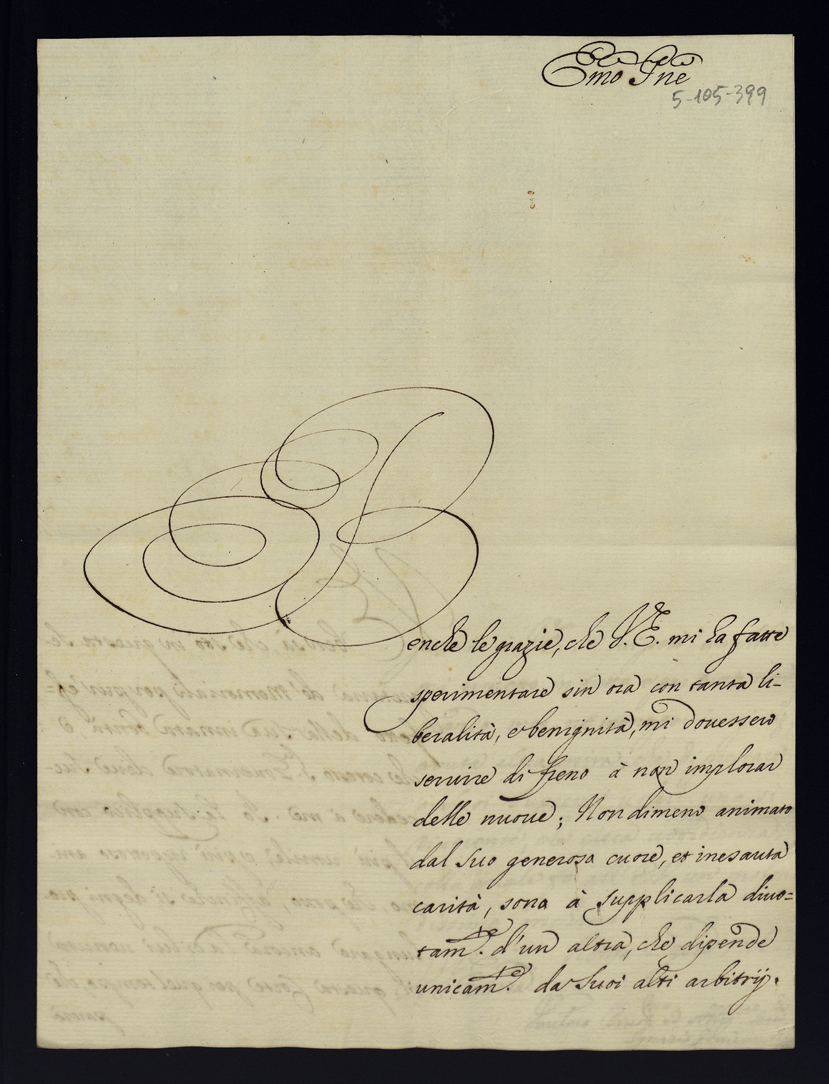 Emo Sne
5-105-399
Benche le grazie, che V. E. mi ha fatte
sperimentare sin ora con tanta li-
beralità, e benignità, mi dovessero
servire di freno à non implorar
delle nuove; Nondimeno animato
dal suo generoso cuore, et inesausta
carità, sono à supplicarla divo=
tamte. d'un altra, che dipende
unicamte. da suoi alti arbitrij.